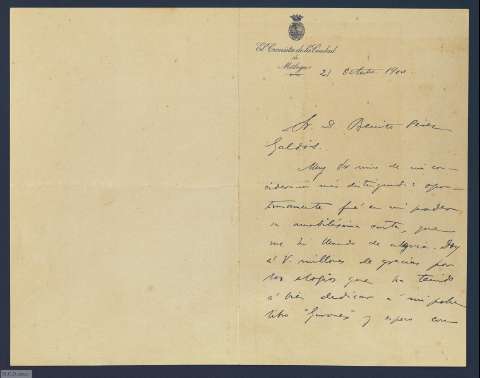 El Cronista de la Ciudad
de
Málaga
21 Octubre 1900
Sr. D. Benito Pérez
Galdós.
Muy Sr. mio de mi con-
sideración más distinguida: opor-
tunamente fué en mi poder
su amabilísima carta, que
me ha llenado de alegría. Doy
á V. millones de gracias por
los elogios que ha tenido
á bien dedicar á mi pobre
libro " " y espero con